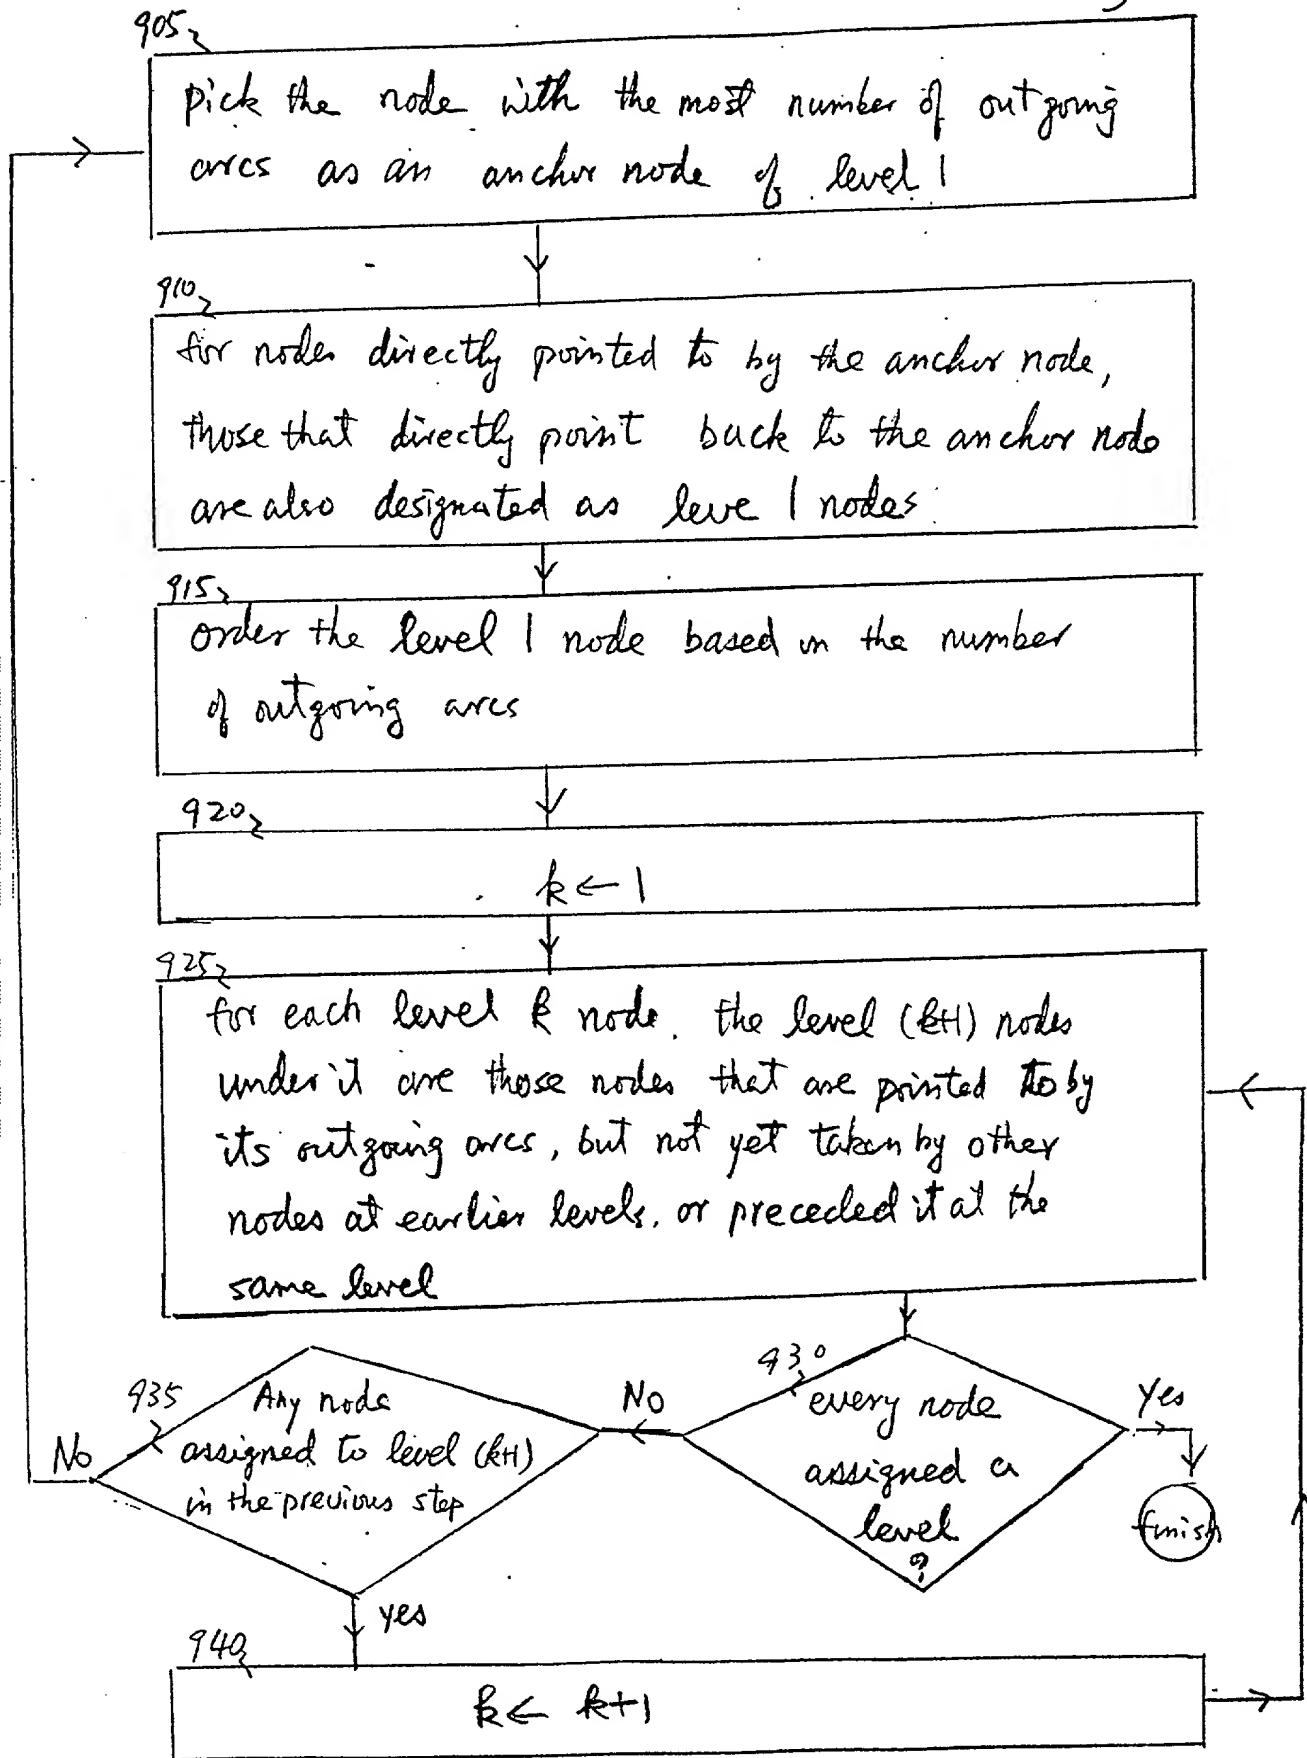 905
pick the node with the most number of outgoing
arcs as an anchor node of level 1
910
for nodes directly pointed to by the anchor node,
those that directly point back to the anchor node
are also designated as leve 1 nodes
915
order the level 1 node based on the number
of outgoing arcs
920
k ← 1
925
for each level k node. the level (k+1) nodes
under it are those nodes that are pointed to by
its outgoing arcs, but not yet taken by other
nodes at earlier levels, or preceded it at the
same level
930
every node
assigned a
level
?
Yes
finish
No
935
Any node
assigned to level (k+1)
in the previous step
No
yes
940
k ← k+1